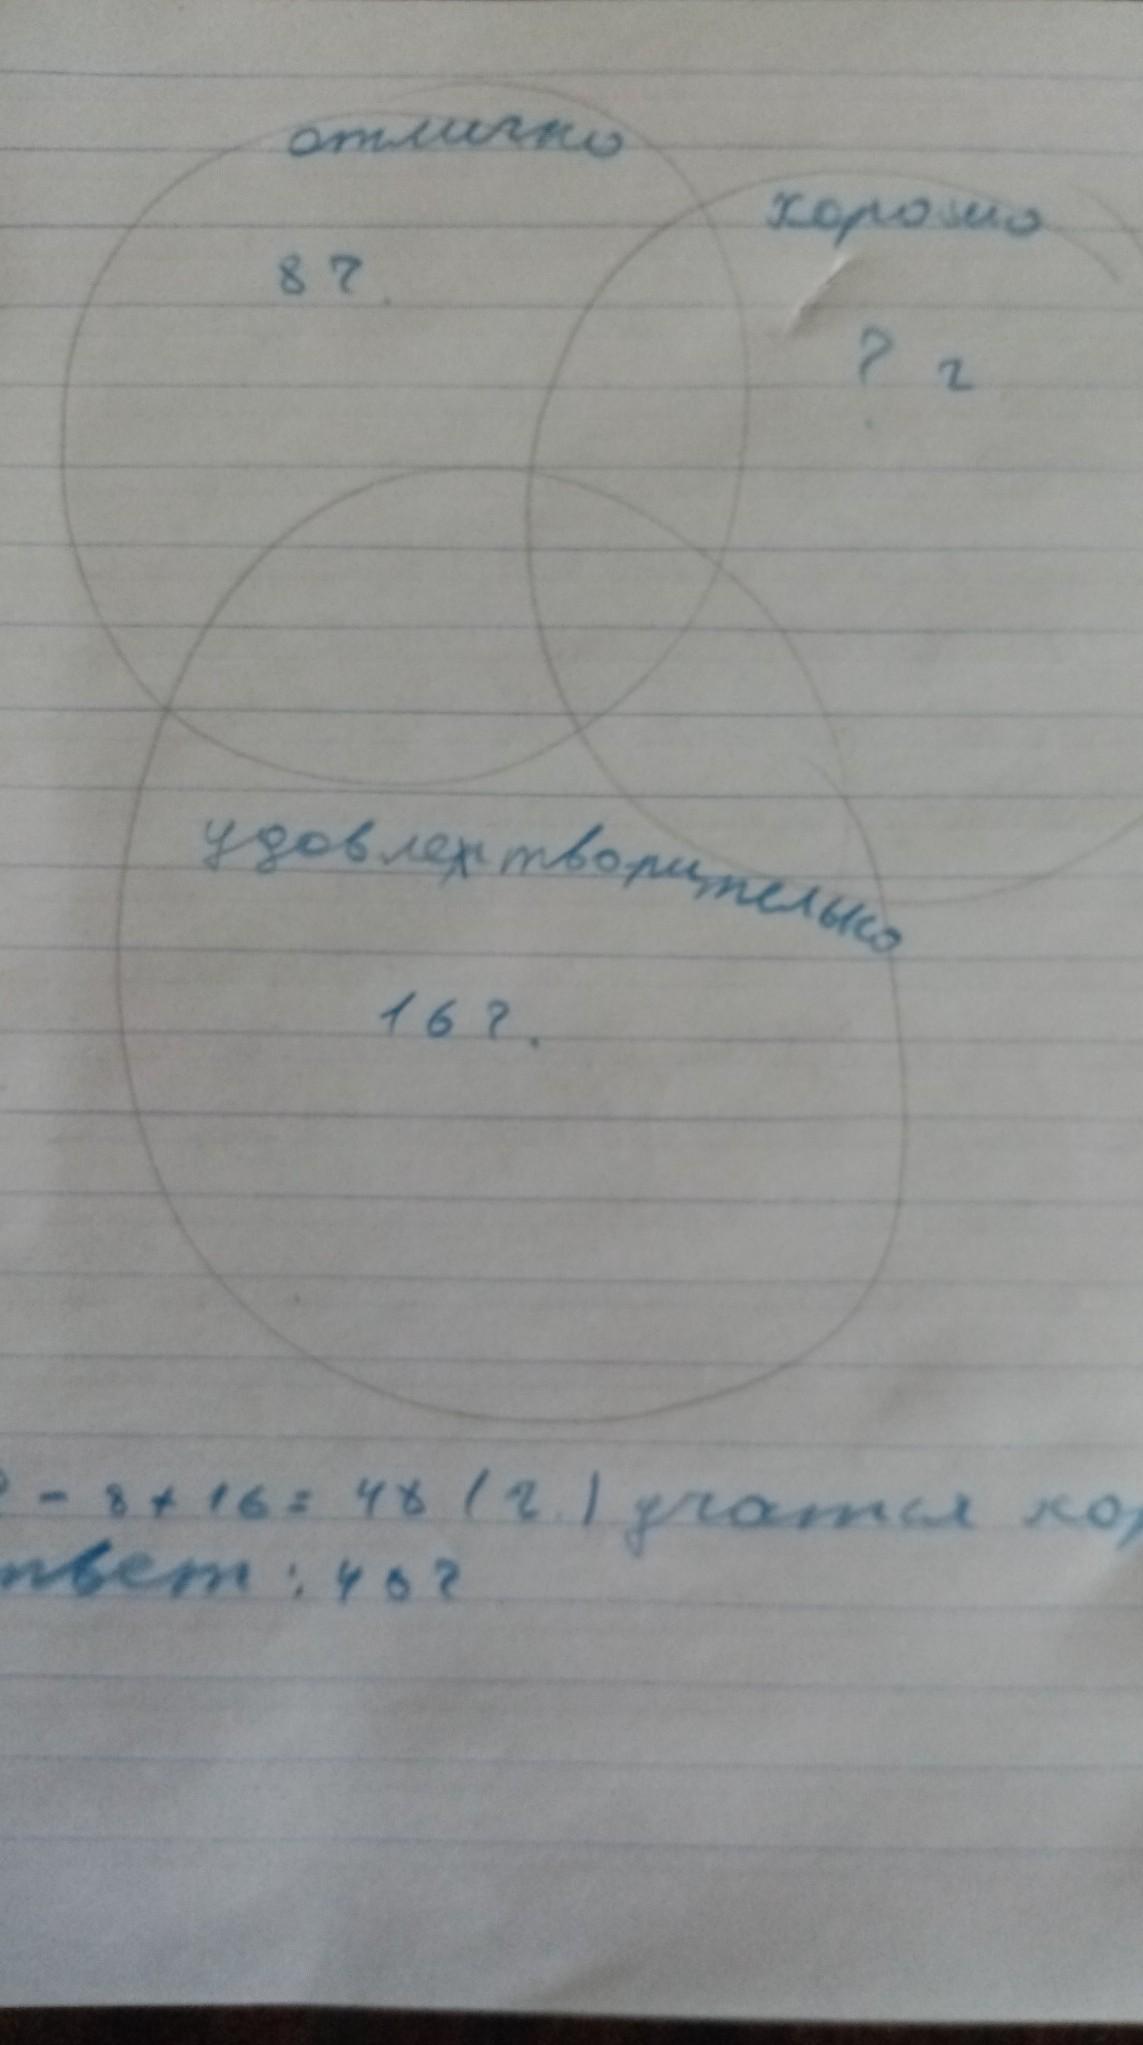 отлично
хорошо
8 ч.
? ч
удовлетворительно
16 ч.
- 8 + 16 = 48 (ч.) учатся хор
твет : 48 ч